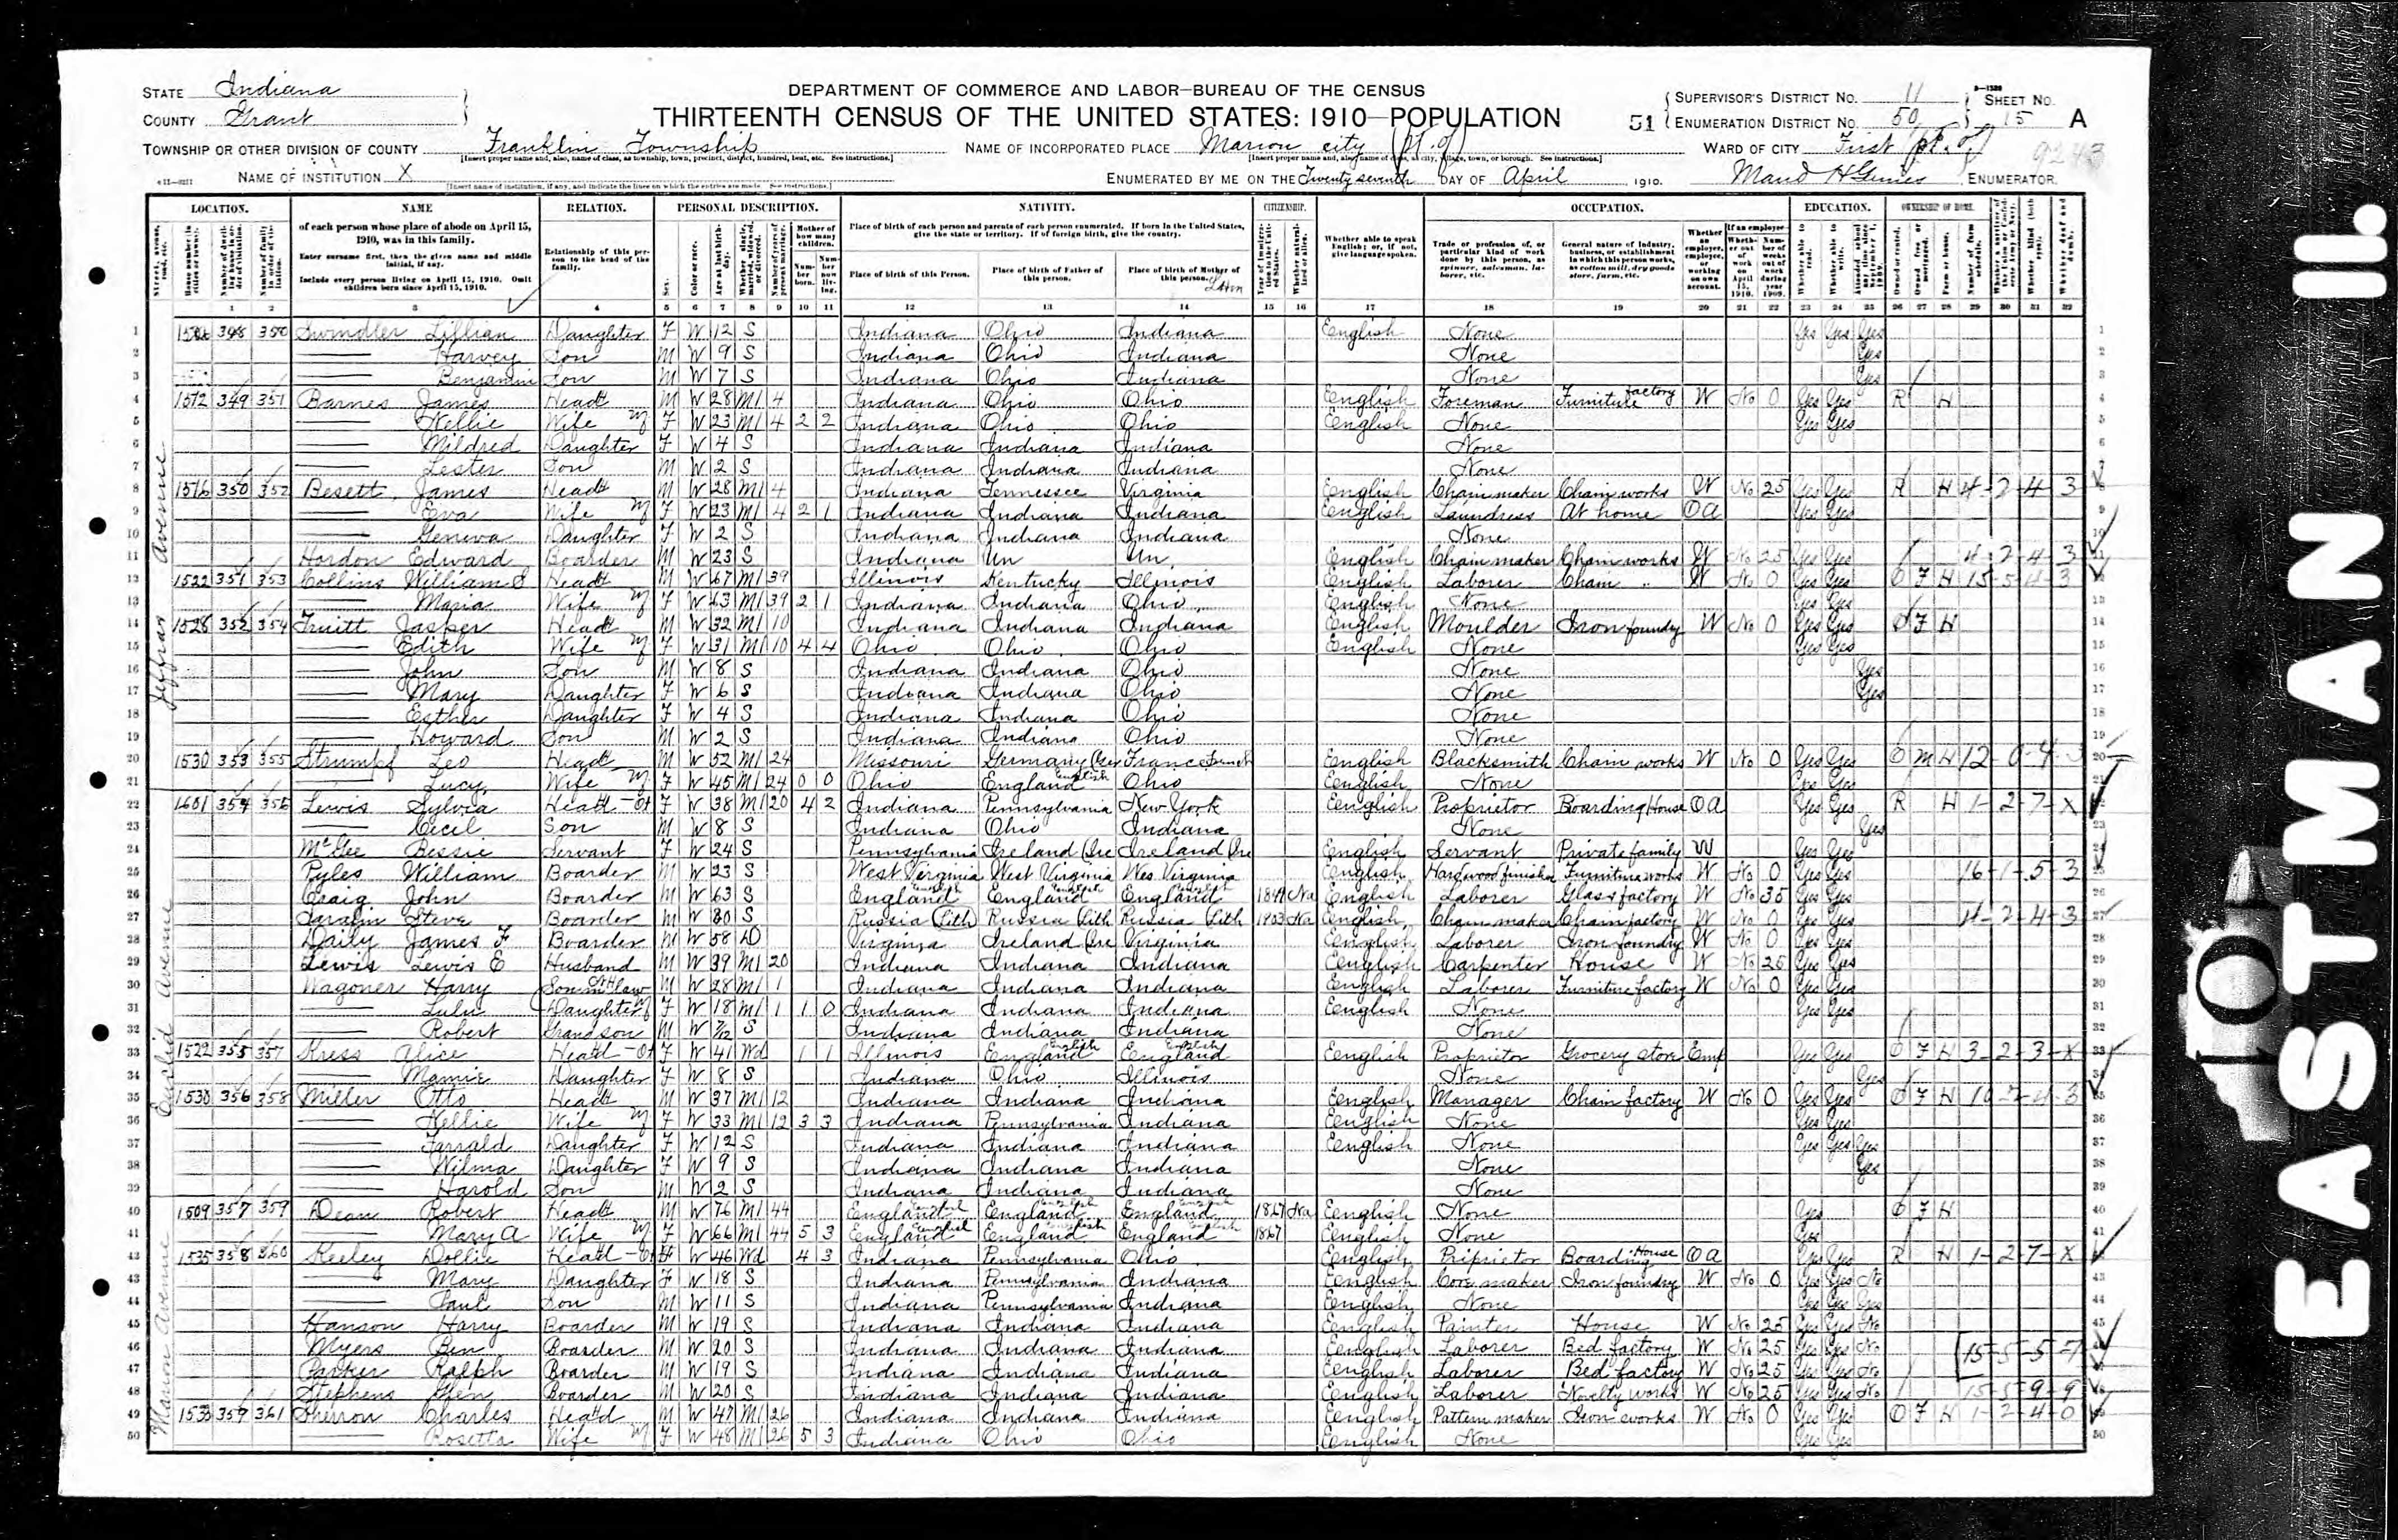 DEPARTMENT OF COMMERCE AND LABOR—BUREAU OF THE CENSUS
THIRTEENTH CENSUS OF THE UNITED STATES: 1910—POPULATION
STATE Indiana
COUNTY Grant
TOWNSHIP OR OTHER DIVISION OF COUNTY Franklin Township
NAME OF INSTITUTION X
NAME OF INCORPORATED PLACE Marion city (pt. of)
ENUMERATED BY ME ON THE Twenty seventh DAY OF April, 1910.
51 SUPERVISOR'S DISTRICT No. 11 SHEET No.
ENUMERATION DISTRICT No. 50 15 A
WARD OF CITY First (pt. of) 9243
Maud H ENUMERATOR.
LOCATION. NAME RELATION. PERSONAL DESCRIPTION. NATIVITY. CITIZENSHIP. OCCUPATION. EDUCATION. OWNERSHIP OF HOME.
of each person whose place of abode on April 15, 1910, was in this family.
Enter surname first, then the given name and middle initial, if any.
Include every person living on April 15, 1910. Omit children born since April 15, 1910.
Relationship of this person to the head of the family.
Place of birth of each person and parents of each person enumerated. If born in the United States, give the state or territory. If of foreign birth, give the country.
Place of birth of this Person. Place of birth of Father of this person. Place of birth of Mother of this person.
Whether able to speak English; or, if not, give language spoken.
Trade or profession of, or particular kind of work done by this person, as spinner, salesman, laborer, etc.
General nature of industry, business, or establishment in which this person works, as cotton mill, dry goods store, farm, etc.
Jeffras Avenue
1 348 350 Swindler Lillian Daughter F W 12 S Indiana Ohio Indiana English None Yes Yes Yes
2 Harvey Son M W 9 S Indiana Ohio Indiana None Yes
3 Benjamin Son M W 7 S Indiana Ohio Indiana None Yes
4 1512 349 351 Barnes James Head M W 28 M1 4 Indiana Ohio Ohio English Foreman Furniture factory W No 0 Yes Yes R H
5 Nellie Wife F W 23 M1 4 2 2 Indiana Ohio Ohio English None Yes Yes
6 Mildred Daughter F W 4 S Indiana Indiana Indiana None
7 Lester Son M W 2 S Indiana Indiana Indiana None
8 1516 350 352 Besett, James Head M W 28 M1 4 Indiana Tennessee Virginia English Chain maker Chain works W No 25 Yes Yes R H 4-2-4-3
9 Eva Wife F W 23 M1 4 2 1 Indiana Indiana Indiana English Laundress At home OA Yes Yes
10 Geneva Daughter F W 2 S Indiana Indiana Indiana None
11 Edward Boarder M W 23 S Indiana Un Un English Chain maker Chain works W No 25 Yes Yes 4-2-4-3
12 1522 351 353 Collins William S Head M W 67 M1 39 Illinois Kentucky Illinois English Laborer Chain " W No 0 Yes Yes O F H 15-5-4-3
13 Maria Wife F W 63 M1 39 2 1 Indiana Indiana Ohio English None Yes Yes
14 1528 352 354 Fruitt Jasper Head M W 32 M1 10 Indiana Indiana Indiana English Moulder Iron foundry W No 0 Yes Yes O F H
15 Edith Wife F W 31 M1 10 4 4 Ohio Ohio Ohio English None Yes Yes
16 John Son M W 8 S Indiana Indiana Ohio None Yes
17 Mary Daughter F W 6 S Indiana Indiana Ohio None Yes
18 Esther Daughter F W 4 S Indiana Indiana Ohio None
19 Howard Son M W 2 S Indiana Indiana Ohio None
20 1530 353 355 Strumpf Leo Head M W 52 M1 24 Missouri Germany (Ger France French English Blacksmith Chain works W No 0 Yes Yes O M H 12-0-4-3
21 Lucy Wife F W 45 M1 24 0 0 Ohio England English Ohio English None Yes Yes
Euclid Avenue
22 1601 354 356 Lewis Sylvia Head F W 38 M1 20 4 2 Indiana Pennsylvania New York English Proprietor Boarding House OA Yes Yes R H 1-2-7-X
23 Cecil Son M W 8 S Indiana Ohio Indiana None Yes
24 McGee Bessie Servant F W 24 S Pennsylvania Ireland (Ire Ireland (Ire English Servant Private family W Yes Yes
25 Pyles William Boarder M W 23 S West Virginia West Virginia Wes Virginia English Hardwood finisher Furniture works W No 0 Yes Yes 16-1-5-3
26 Craig John Boarder M W 63 S England English England English England English Na English Laborer Glass factory W No 35 Yes Yes
27 Steve Boarder M W 30 S Russia (Lith) Russia (Lith Russia (Lith 1903 Na English Chain maker Chain factory W No 0 Yes Yes 4-2-4-3
28 Daily James F Boarder M W 58 D Virginia Ireland (Ire Virginia English Laborer Iron foundry W No 0 Yes Yes
29 Lewis Lewis E Husband M W 39 M1 20 Indiana Indiana Indiana English Carpenter House W No 25 Yes Yes
30 Wagoner Harry Son in law M W 28 M1 1 Indiana Indiana Indiana English Laborer Furniture factory W No 0 Yes Yes
31 Lulu Daughter F W 18 M1 1 1 0 Indiana Indiana Indiana English None Yes Yes
32 Robert Grandson M W 7/12 S Indiana Indiana Indiana None
33 1522 355 357 Kress Alice Head F W 41 Wd 1 1 Illinois England English England English English Proprietor Grocery store Emp Yes Yes O F H 3-2-3-X
34 Mamie Daughter F W 8 S Indiana Ohio Illinois None Yes
35 1530 356 358 Miller Otto Head M W 37 M1 12 Indiana Indiana Indiana English Manager Chain factory W No 0 Yes Yes O F H 10-2-4-3
36 Nellie Wife F W 33 M1 12 3 3 Indiana Pennsylvania Indiana English None Yes Yes
37 Daughter F W 12 S Indiana Indiana Indiana English None Yes Yes Yes
38 Wilma Daughter F W 9 S Indiana Indiana Indiana None Yes
39 Harold Son M W 2 S Indiana Indiana Indiana None
Marion Avenue
40 1509 357 359 Dean Robert Head M W 76 M1 44 England English England English England English 1867 Na English None Yes O F H
41 Mary A Wife F W 66 M1 44 5 3 England English England English England English 1867 English None Yes
42 1535 358 360 Keeley Dollie Head F W 46 Wd 4 3 Indiana Pennsylvania Ohio English Priprietor Boarding House OA Yes Yes R H 1-2-7-X
43 Mary Daughter F W 18 S Indiana Pennsylvania Indiana English Core maker Iron foundry W No 0 Yes Yes No
44 Paul Son M W 11 S Indiana Pennsylvania Indiana English None Yes Yes Yes
45 Hanson Harry Boarder M W 19 S Indiana Indiana Indiana English Painter House W No 25 Yes Yes No
46 Myers Ben Boarder M W 20 S Indiana Indiana Indiana English Laborer Bed factory W No 25 Yes Yes No 15-5-5-7
47 Parker Ralph Boarder M W 19 S Indiana Indiana Indiana English Laborer Bed factory W No 25 Yes Yes No
48 Stephens Glen Boarder M W 20 S Indiana Indiana Indiana English Laborer Novelty works W No 25 Yes Yes No 15-5-9-9
49 359 361 Sherron Charles Head M W 47 M1 26 Indiana Indiana Indiana English Pattern maker Iron works W No 0 Yes Yes O F H 1-2-4-0
50 Rosetta Wife F W 48 M1 26 5 3 Indiana Ohio Ohio English None Yes Yes
EASTMAN II.
10